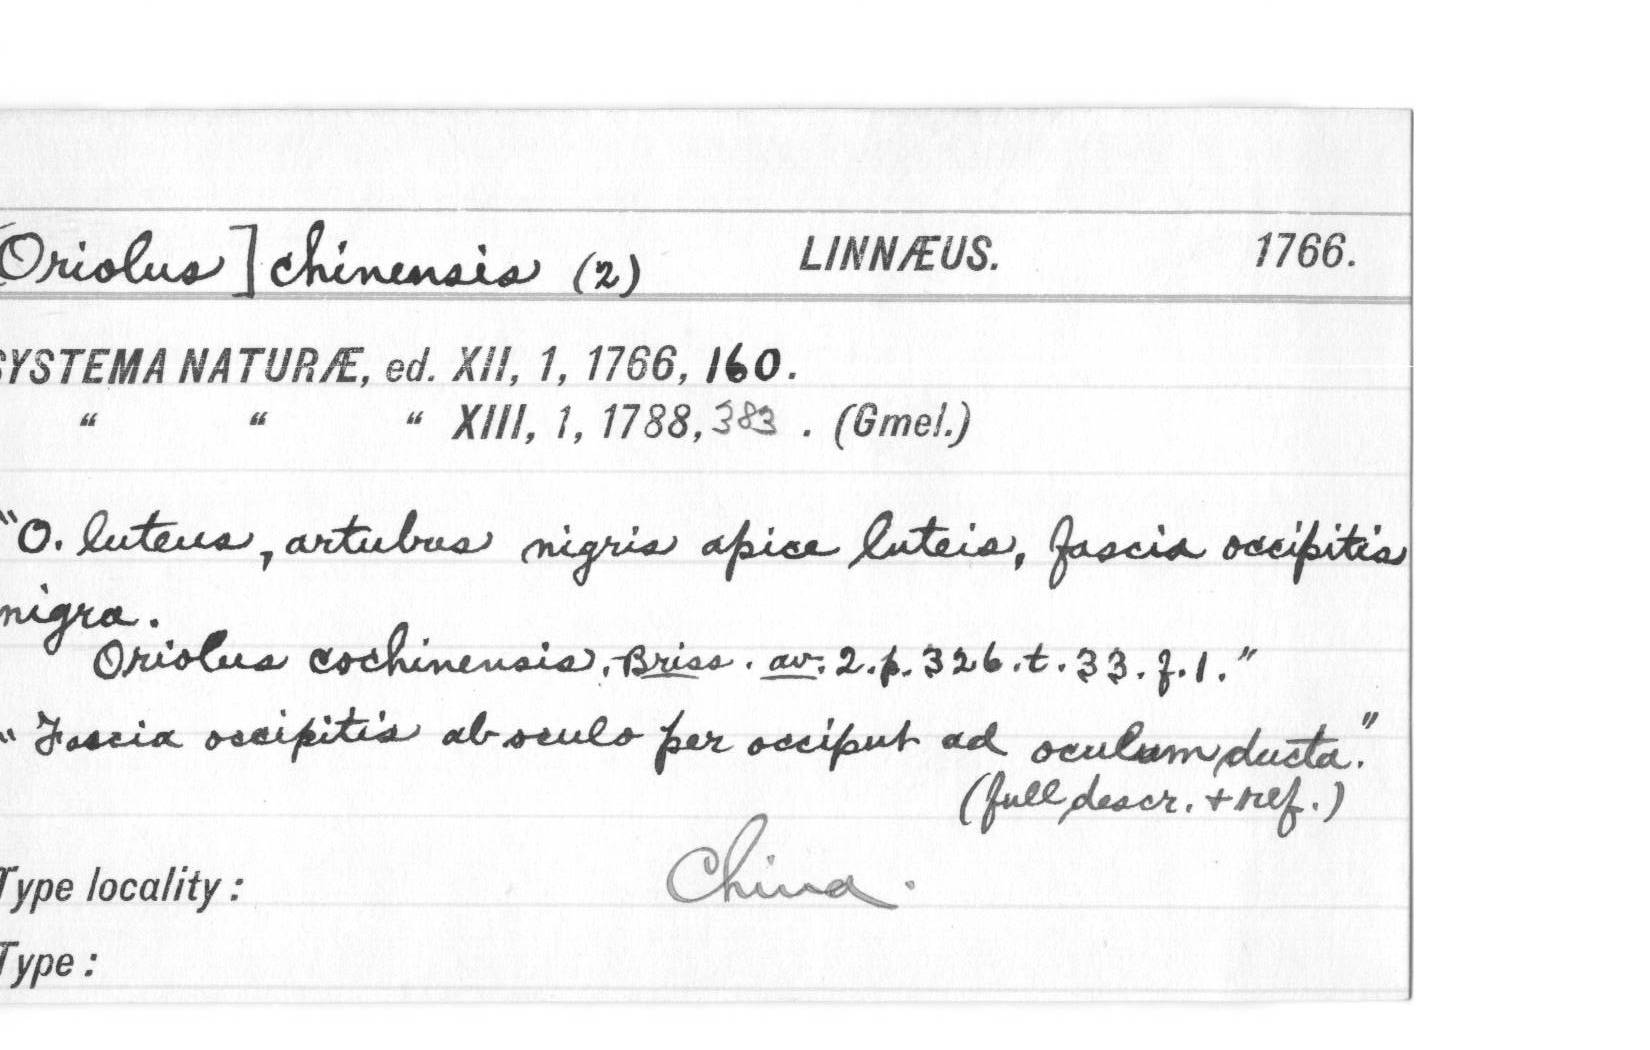 [Oriolus] chinensis (2) LINNÆUS. 1766.
SYSTEMA NATURÆ, ed. XII, 1, 1766, 160.
“ “ “ XIII, 1, 1788, 383 . (Gmel.)
"O. luteus, artubus nigris apice luteis, fascia occipitis
nigra.
Oriolus cochinensis. Briss. av. 2. p. 326. t. 33. f. 1."
"Fascia occipitis ab oculo per occiput ad oculum ducta."
(full descr. + ref.)
Type locality: China.
Type: